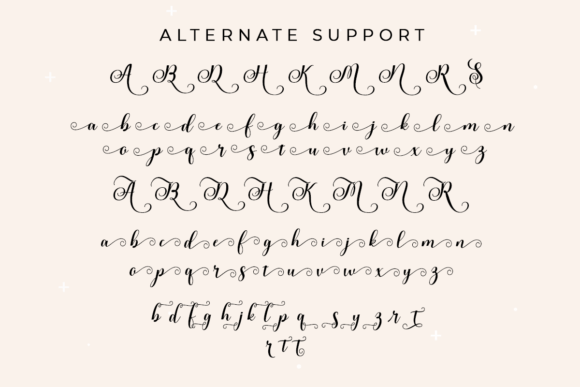 ALTERNATE SUPPORT
A B D H K M N R S
a b c d e f g h i j k l m n
o p q r s t u v w x y z
A B D H K M N R
a b c d e f g h i j k l m n
o p q r s t u v w x y z
b d f g h j k l p q s y z r t
r t t